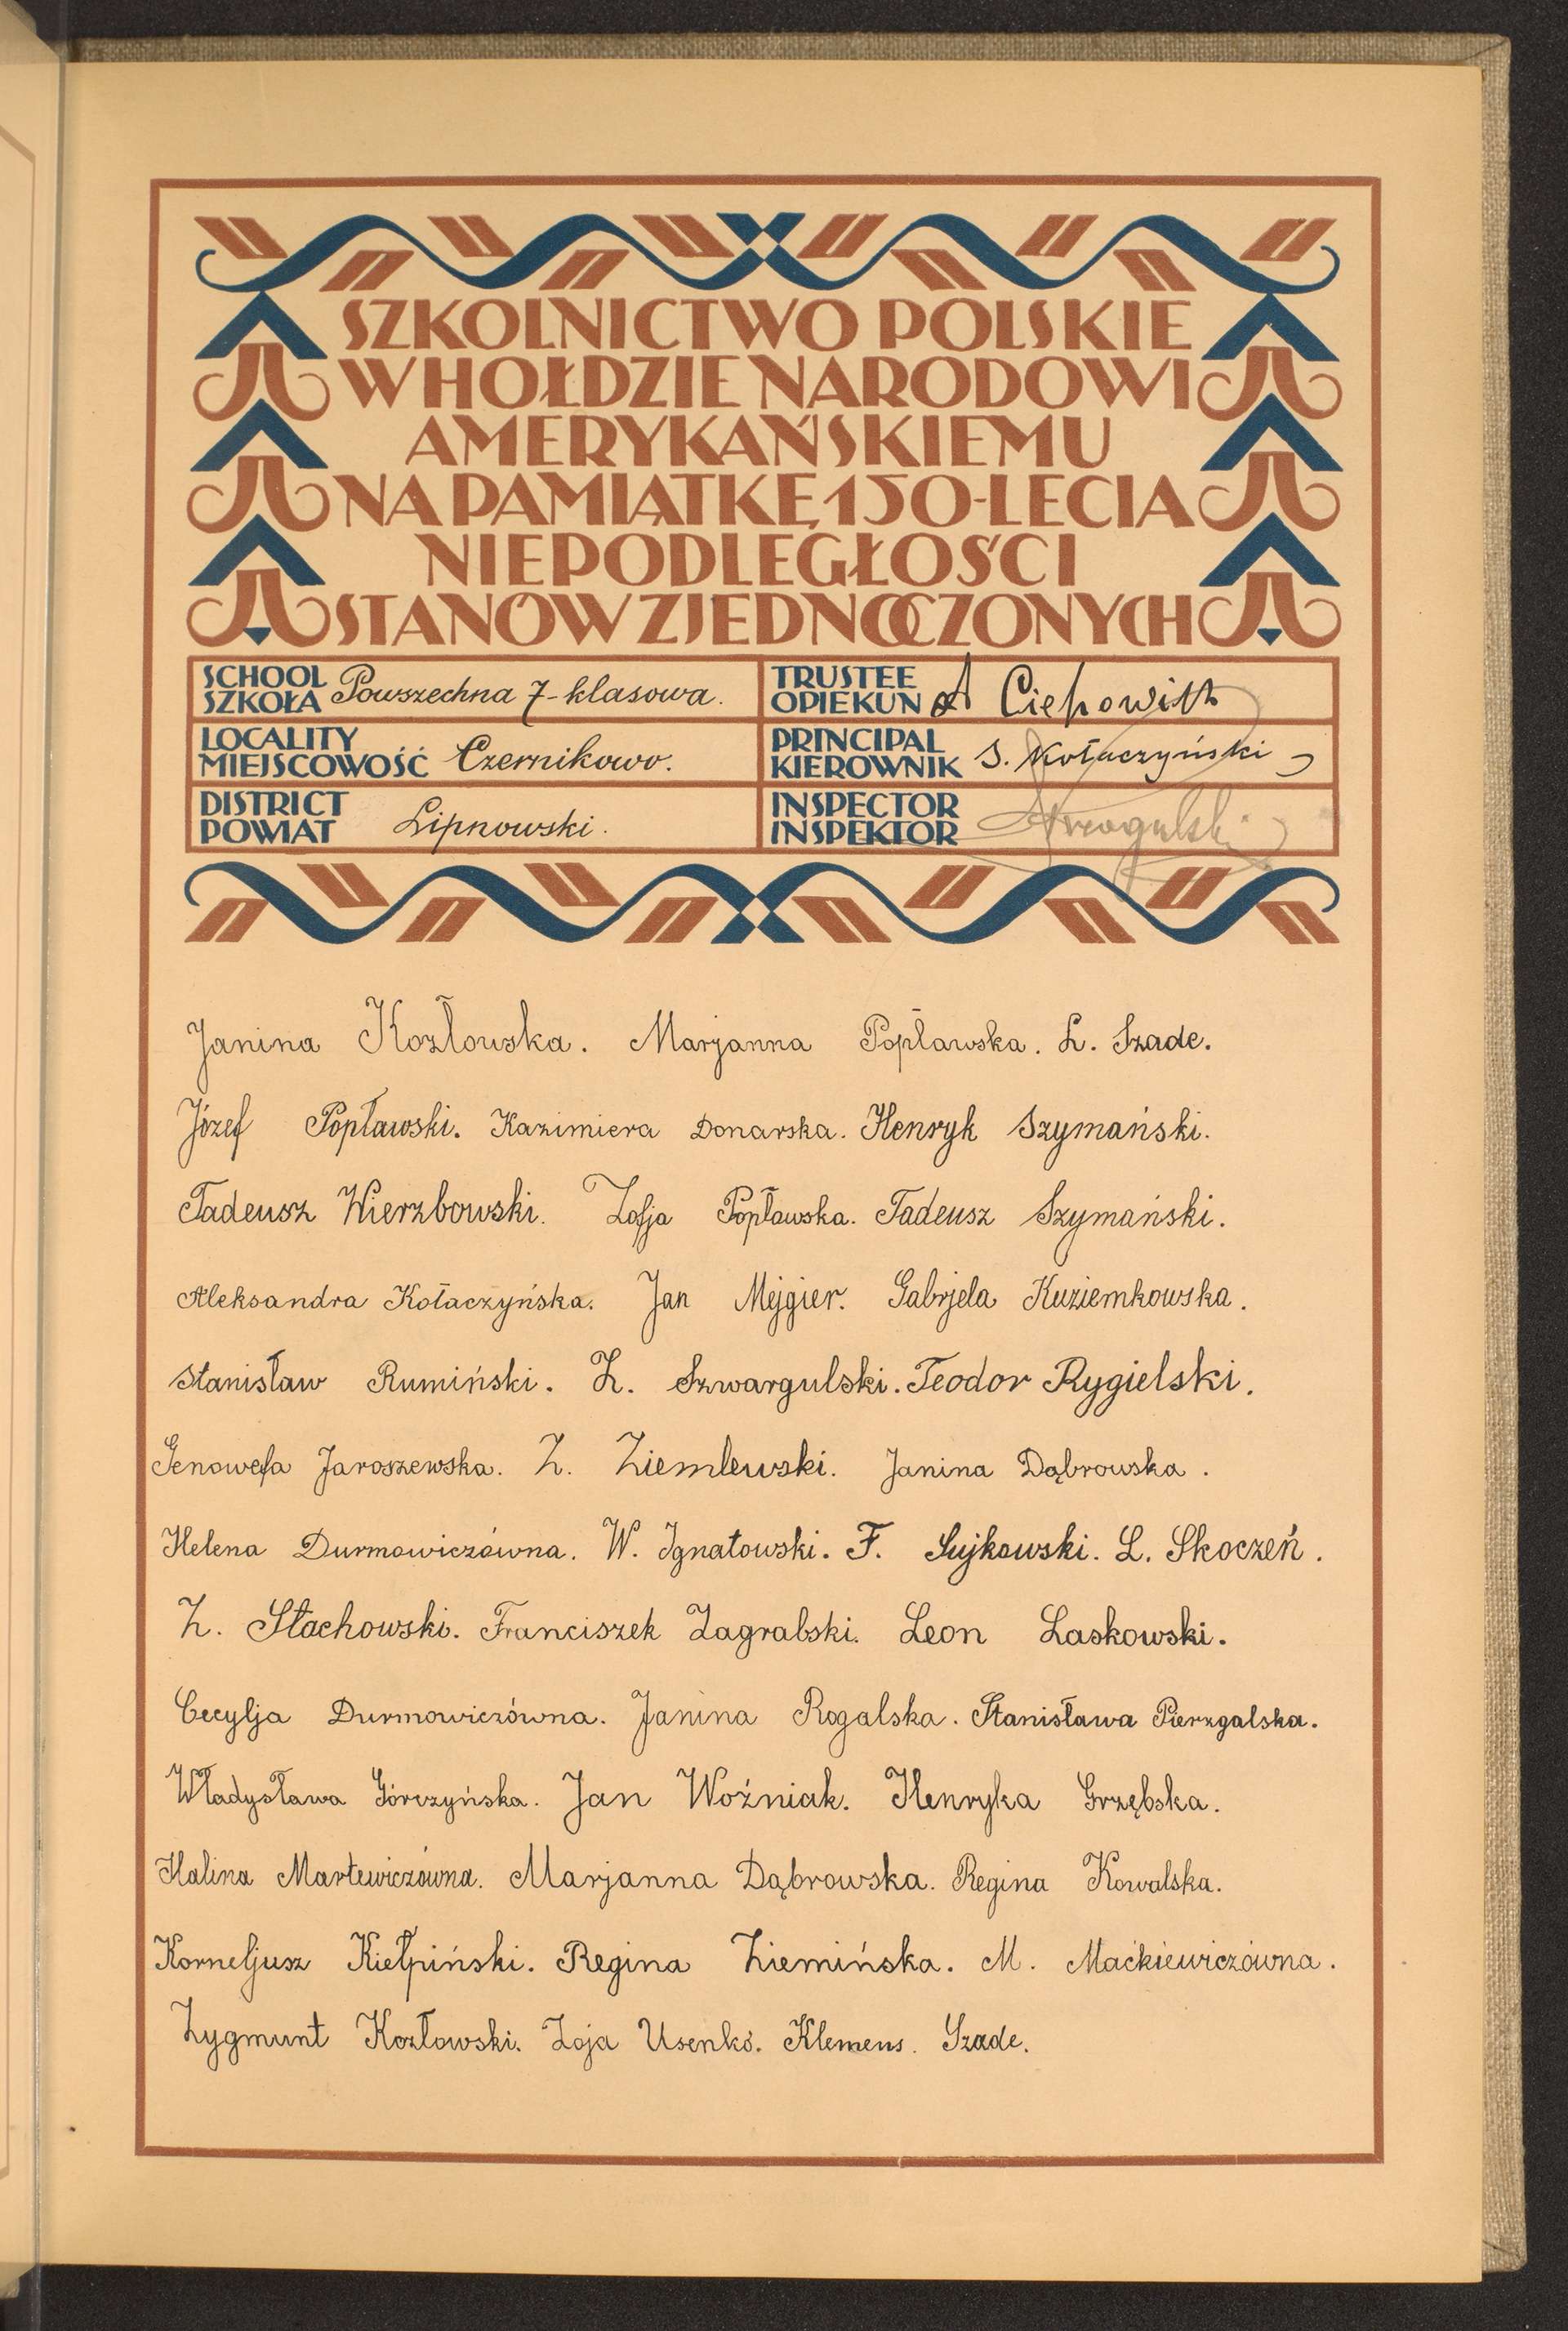 SZKOLNICTWO POLSKIE
W HOŁDZIE NARODOWI
AMERYKAŃSKIEMU
NA PAMIĄTKĘ 150-LECIA
NIEPODLEGŁOŚCI
STANÓW ZJEDNOCZONYCH
SCHOOL
SZKOŁA Powszechna 7-klasowa.
TRUSTEE
OPIEKUN A
LOCALITY
MIEJSCOWOŚĆ Czernikowo.
PRINCIPAL
KIEROWNIK S. Kołaczyński
DISTRICT
POWIAT Lipnowski.
INSPECTOR
INSPEKTOR
Janina Kozłowska. Marjanna Popławska. L. Szade.
Józef Popławski. Kazimiera Donarska. Henryk Szymański.
Tadeusz Wierzbowski. Zofja Popławska. Tadeusz Szymański.
Aleksandra Kołaczyńska. Jan Mejgier. Gabrjela Kuziemkowska.
Stanisław Rumiński. Z. Szwargulski. Teodor Rygielski.
Genowefa Jaroszewska. Z. Ziemlewski. Janina Dąbrowska.
Helena Durmowiczówna. W. Ignatowski. F. Sujkowski. L. Skoczeń.
Z. Stachowski. Franciszek Zagrabski. Leon Laskowski.
Cecylja Durmowiczówna. Janina Rogalska. Stanisława Pierzgalska.
Władysława Górczyńska. Jan Woźniak. Henryka Grzębska.
Halina Martewiczówna. Marjanna Dąbrowska. Regina Kowalska.
Korneljusz Kiełpiński. Regina Ziemińska. M. Maćkiewiczówna.
Zygmunt Kozłowski. Zoja Usenko. Klemens. Szade.